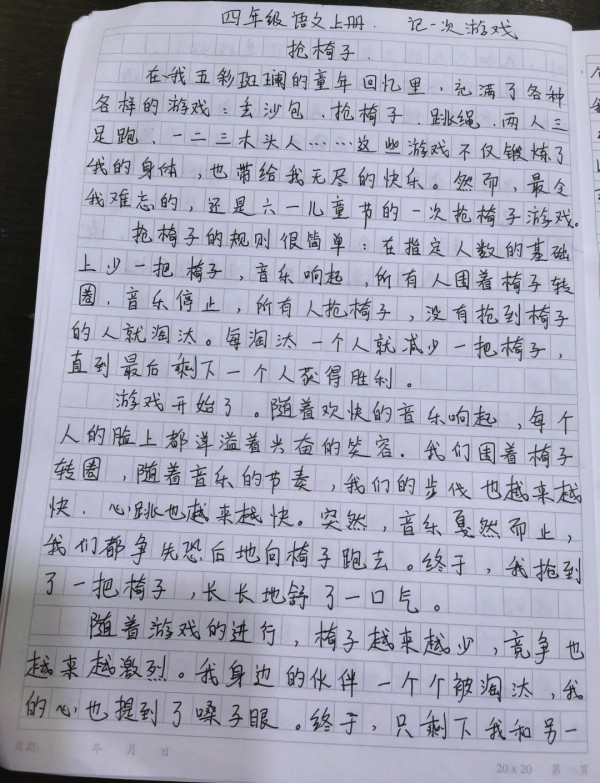 四年级语文上册. 记一次游戏
抢椅子.
在我五彩斑斓的童年回忆里,充满了各种
各样的游戏:丢沙包、抢椅子、跳绳、两人三
足跑、一二三木头人……这些游戏不仅锻炼了
我的身体,也带给我无尽的快乐。然而,最令
我难忘的,还是六一儿童节的一次抢椅子游戏。
抢椅子的规则很简单:在指定人数的基础
上少一把椅子,音乐响起,所有人围着椅子转
圈,音乐停止,所有人抢椅子,没有抢到椅子
的人就淘汰。每淘汰一个人就减少一把椅子,
直到最后剩下一个人获得胜利。
游戏开始了。随着欢快的音乐响起,每个
人的脸上都洋溢着兴奋的笑容.我们围着椅子
转圈,随着音乐的节奏,我们的步伐也越来越
快.心跳也越来越快。突然,音乐戛然而止,
我们都争先恐后地向椅子跑去。终于,我抢到
了一把椅子,长长地舒了一口气。
随着游戏的进行,椅子越来越少,竞争也
越来越激烈。我身边的伙伴一个个被淘汰,我
的心也提到了嗓子眼。终于,只剩下我和另一
日期: 年 月 日
20x20 第 页